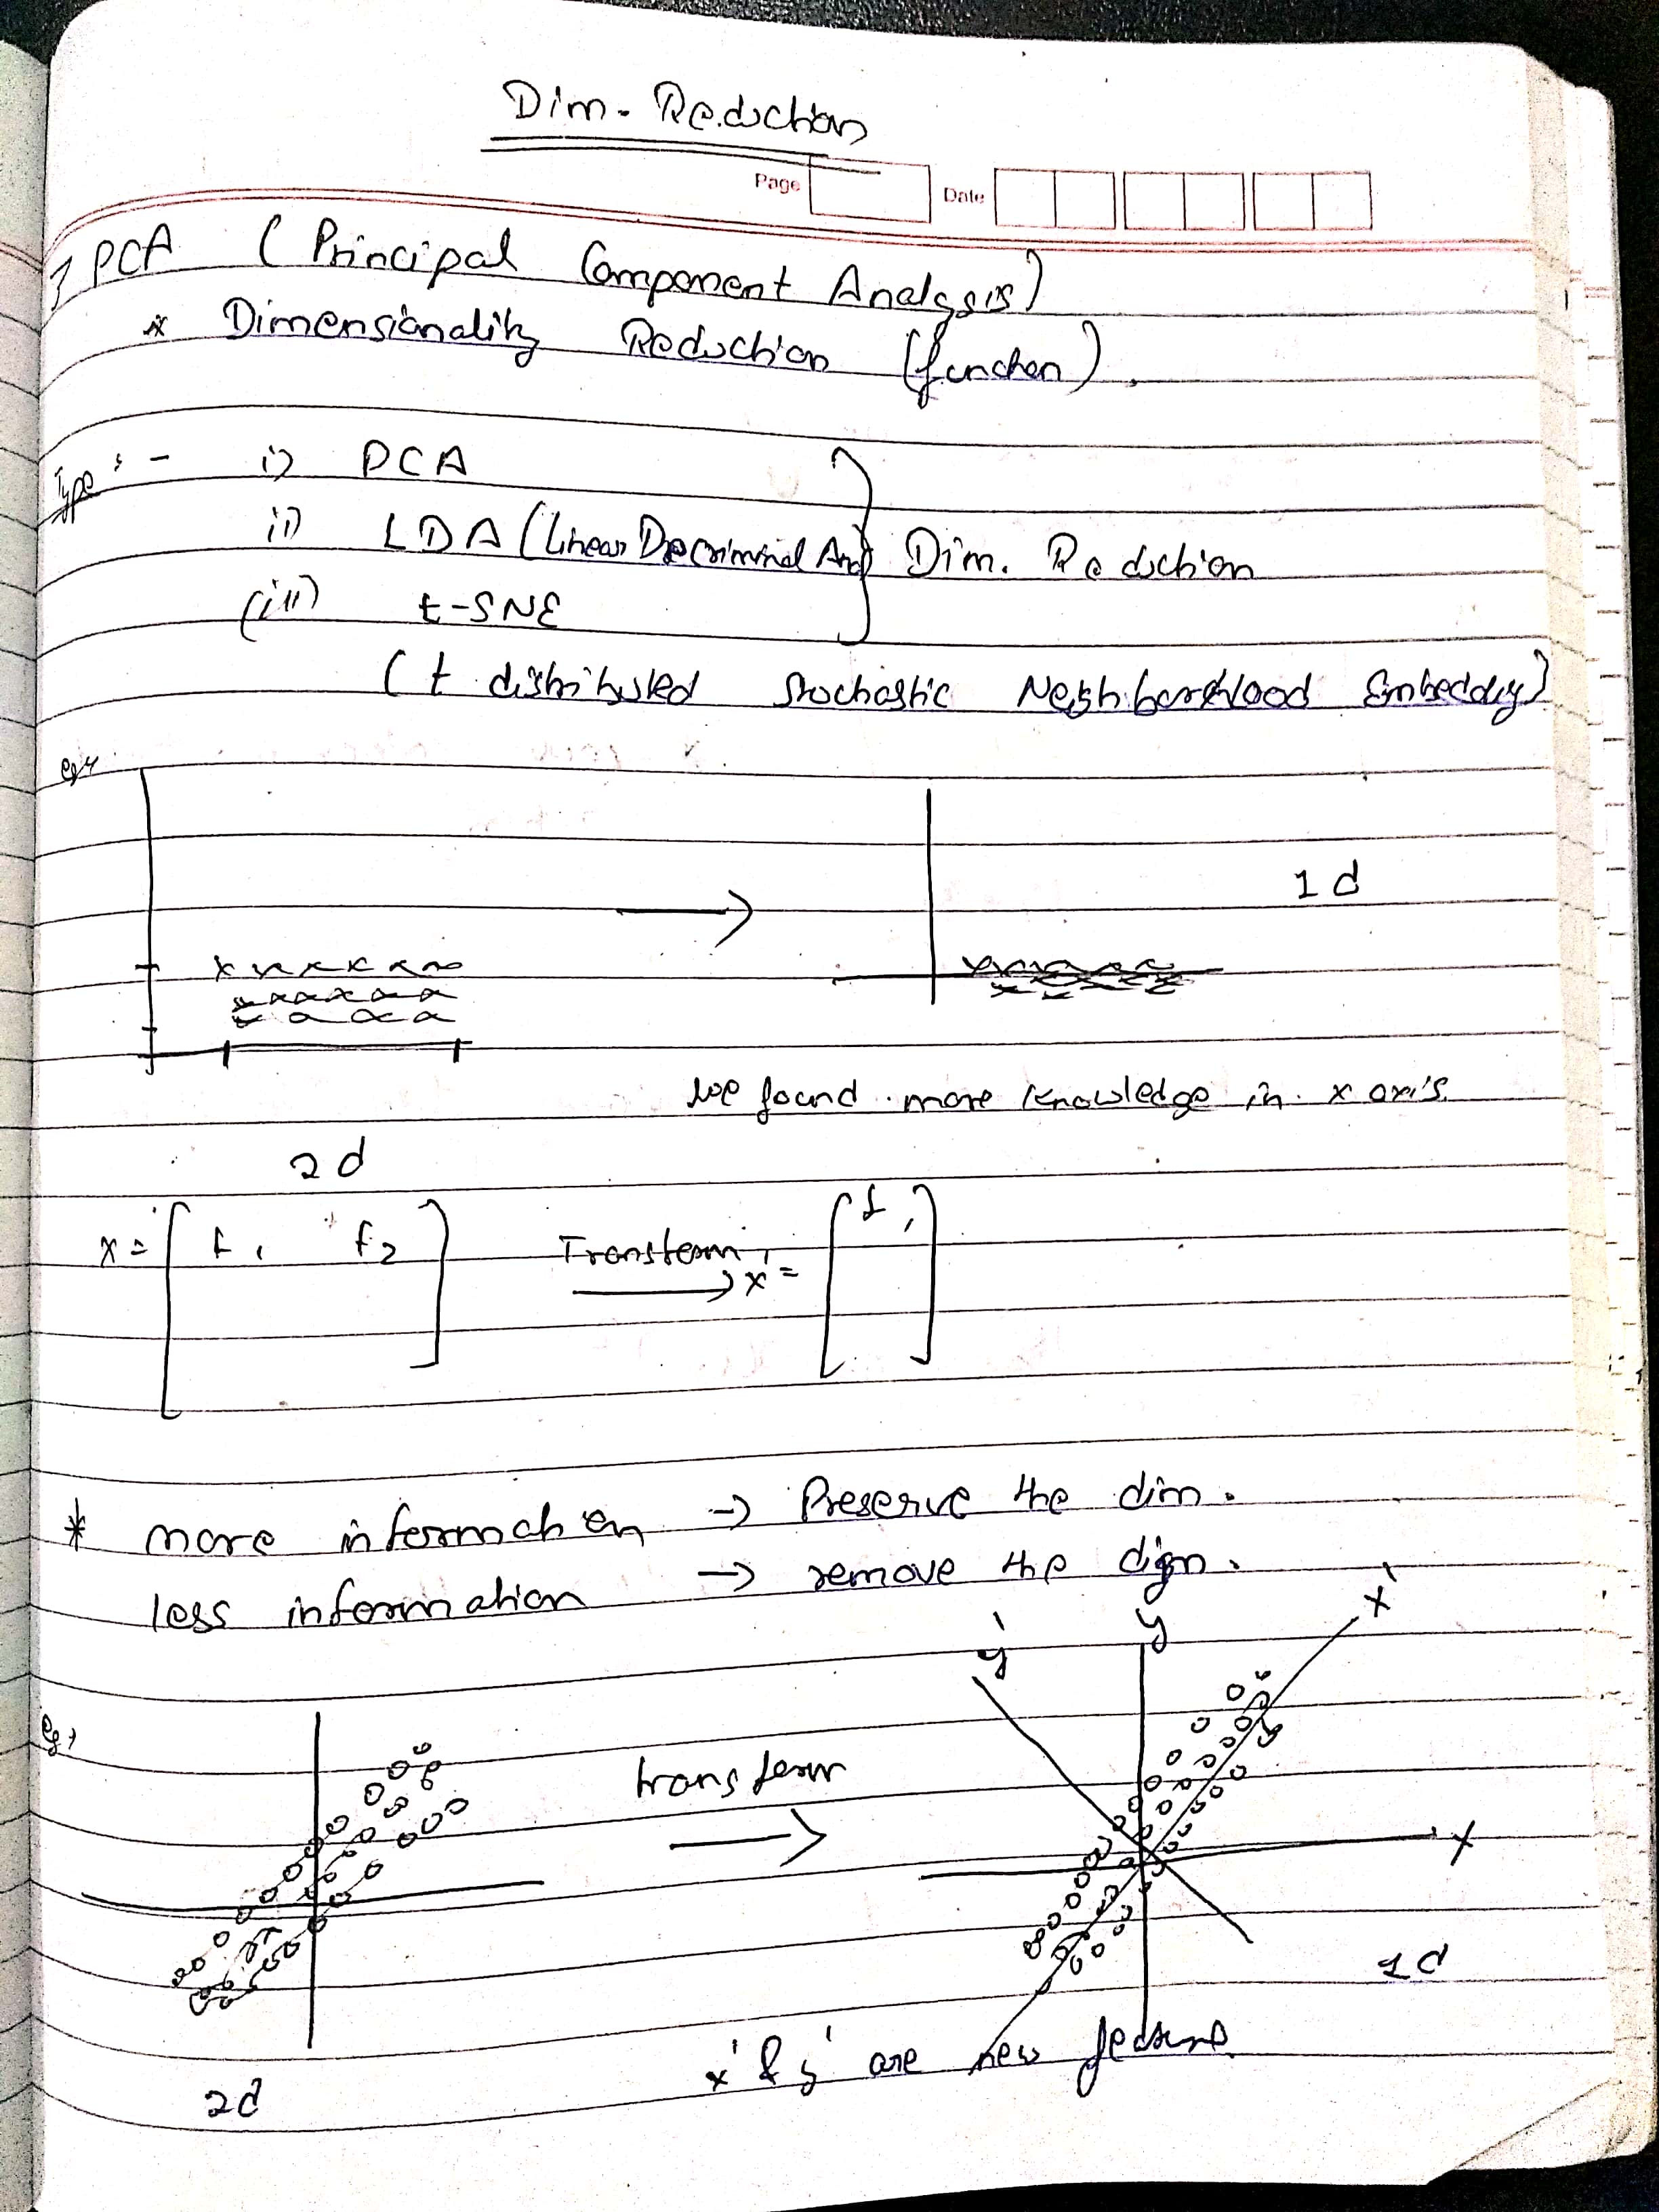 Dim. Reduction
Page Date
PCA (Principal Component Analysis)
* Dimensionality Reduction (function).
Type :- i) PCA
ii) LDA (Linear Discriminal Ana) Dim. Reduction
(iii) t-SNE
(t distributed Stochastic Neighborhood Embedding)
eg
1 d
We found more knowledge in x axis.
2 d
x = [ f1 f2 ] Transform → x' = [ f1 ]
* more information → Preserve the dim.
less information → remove the dim.
y' y x'
eg
transform →
x
1d
x' & y' are new feature.
2d